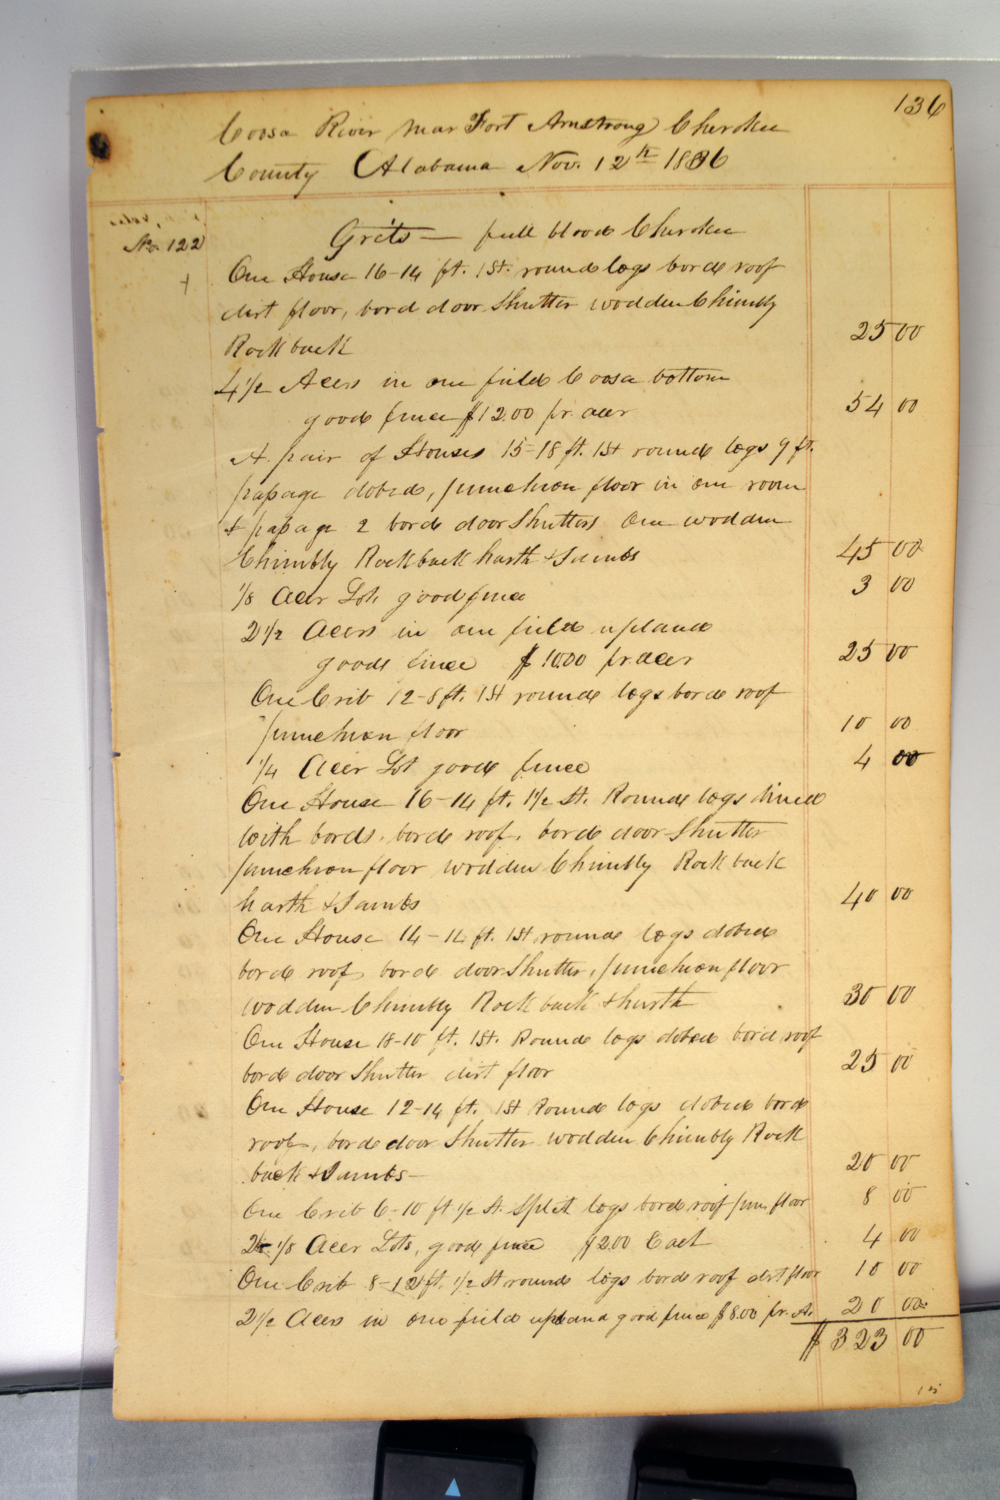 136
Coosa River near Fort Armstrong Cherokee
County Alabama Nov. 12th 1836
No. 122
Grits — full blood Cherokee
One House 16-14 ft. 1 St. round logs bord roof
dirt floor, bord door Shutter wodden Chimbly
Rock back 25 00
4 1/2 Acers in one field Coosa bottom
good fence $12.00 pr. acer 54 00
A pair of Houses 15-18 ft. 1 St round logs 9 ft.
passage dobed, puncheon floor in one room
& passage 2 bord door Shutters One wodden
Chimbly Rock back harth & Jambs 45 00
1/8 Acer Lot good fence 3 00
2 1/2 Acers in one field upland
good fence $10.00 pr acer 25 00
One Crib 12-8 ft. 1 St round logs bord roof
puncheon floor 10 00
1/4 Acer Lot good fence 4 00
One House 16-14 ft. 1 1/2 St. Round logs lined
with bords, bord roof, bord door Shutter
puncheon floor wodden Chimbly Rock back
harth & Jambs 40 00
One House 14-14 ft. 1 St round logs dobed
bord roof, bord door Shutter, puncheon floor
wodden Chimbly Rock back & harth 30 00
One House 18-10 ft. 1 St. Round logs dobed bord roof
bord door Shutter dirt floor 25 00
One House 12-14 ft. 1 St Round logs dobed bord
roof, bord door Shutter wodden Chimbly Rock
back & Jambs — 20 00
One Crib 6-10 ft 1/2 St. Split logs bord roof pun. floor 8 00
2 1/8 Acer Lots, good fence $2.00 Each 4 00
One Crib 8-12 ft. 1/2 St round logs bord roof dirt floor 10 00
2 1/2 Acers in one field upland good fence $8.00 pr. A. 20 00
$323 00